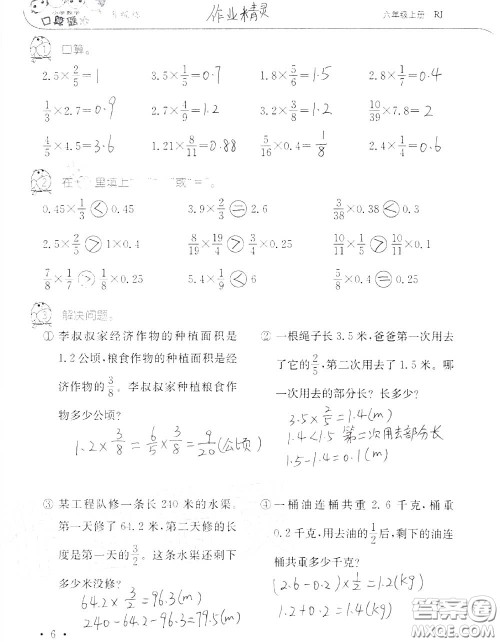 口算题
作业精灵
六年级上册 RJ
① 口算。
2.5×2/5=1 3.5×1/5=0.7 1.8×5/6=1.5 2.4×1/6=0.4
1/3×2.7=0.9 2.7×4/9=1.2 3.2×3/8=1.2 10/39×7.8=2
4/5×4.5=3.6 1.21×8/11=0.88 5/16×0.4=1/8 2.4×1/4=0.6
② 在 里填上" " " "或"="。
0.45×1/3<0.45 3.9×2/3=2.6 3/38×0.38<0.3
2/5×1/2>1×0.4 8/19×19/4>3/4×0.25 10/11×1/5>1/10
7/8×1/7>1/2×0.25 5.4×1/9<6 5/6×0.4=0.25
③ 解决问题。
① 李叔叔家经济作物的种植面积是
1.2公顷,粮食作物的种植面积是经
济作物的3/8。李叔叔家种植粮食作
物多少公顷?
1.2×3/8=6/5×3/8=9/20(公顷)
② 一根绳子长3.5米,爸爸第一次用去
了它的2/5,第二次用去了1.5米。哪
一次用去的部分长?长多少?
3.5×2/5=1.4(m)
1.4<1.5 第二次用去部分长
1.5-1.4=0.1(m)
③ 某工程队修一条长240米的水渠。
第一天修了64.2米,第二天修的长
度是第一天的3/2。这条水渠还剩下
多少米没修?
64.2×3/2=96.3(m)
240-64.2-96.3=79.5(m)
④ 一桶油连桶共重2.6千克,桶重
0.2千克,用去油的1/2后,剩下的油连
桶共重多少千克?
(2.6-0.2)×1/2=1.2(kg)
1.2+0.2=1.4(kg)
·6·
答案圈
MXQE.COM